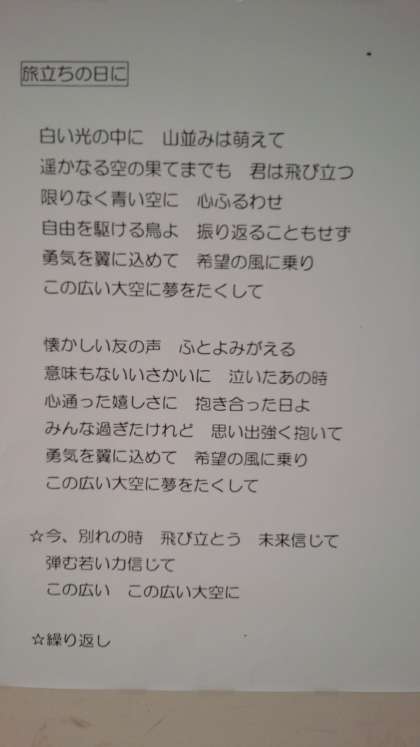 旅立ちの日に
白い光の中に　山並みは萌えて
遥かなる空の果てまでも　君は飛び立つ
限りなく青い空に　心ふるわせ
自由を駆ける鳥よ　振り返ることもせず
勇気を翼に込めて　希望の風に乗り
この広い大空に夢をたくして
懐かしい友の声　ふとよみがえる
意味もないいさかいに　泣いたあの時
心通った嬉しさに　抱き合った日よ
みんな過ぎたけれど　思い出強く抱いて
勇気を翼に込めて　希望の風に乗り
この広い大空に夢をたくして
☆今、別れの時　飛び立とう　未来信じて
弾む若い力信じて
この広い　この広い大空に
☆繰り返し